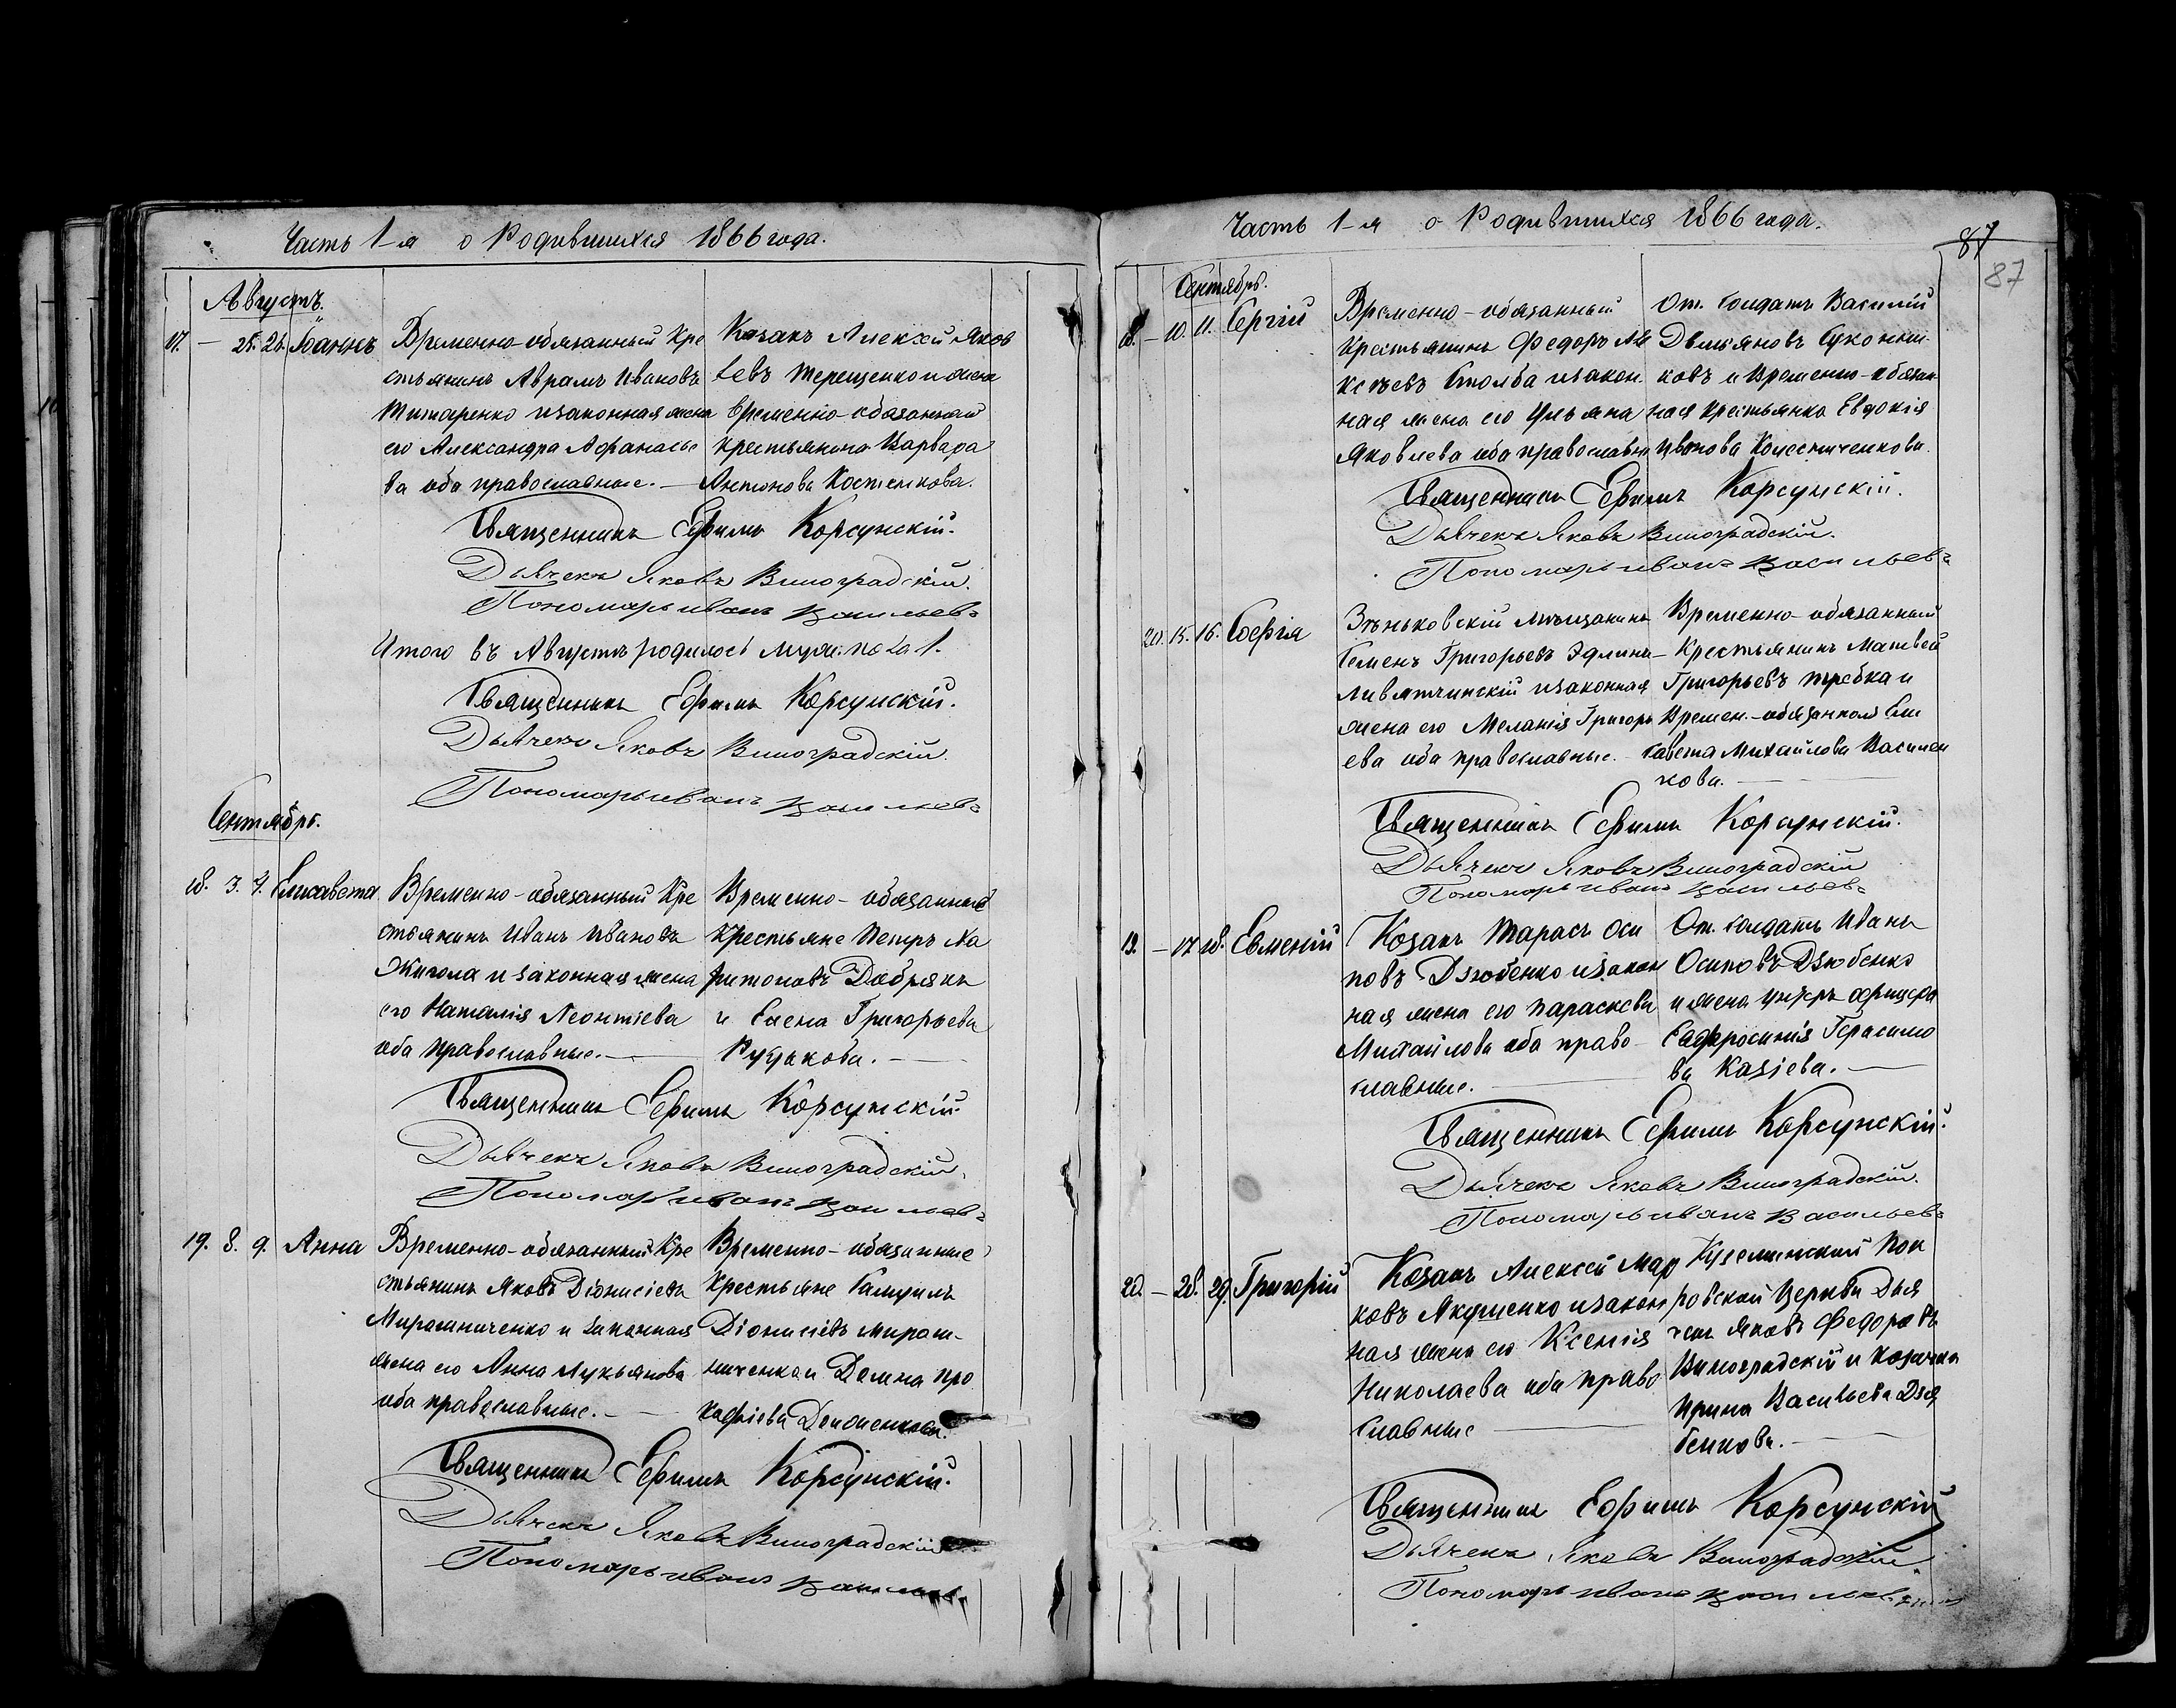 Часть 1-я о Родившихся 1866 года.
Августъ.
17. — 25. 26. Іоаннъ
Временно-обязанный Кре
стьянинъ Аврамъ Ивановъ
Титаренко и законная жена
его Александра Афанасье
ва оба православные. —
Козакъ Алексей Яков
левъ Терещенко и жена
временно-обязанная
крестьянина Варвара
Антонова Костенкова.
Священникъ Ефимъ Корсунскій.
Дьячекъ Яковъ Виноградскій.
Пономарь Иванъ Васильевъ
Итого въ Августѣ родилось муж: пола 1.
Священникъ Ефимъ Корсунскій.
Дьячекъ Яковъ Виноградскій.
Пономарь Иванъ Васильевъ
Сентябрь.
18. 3. 4. Елисавета
Временно-обязанный Кре
стьянинъ Иванъ Ивановъ
Жигола и законная жена
его Наталія Леонтіева
оба православные. —
Временно-обязанные
Крестьяне Петръ Ха
ритоновъ Добрякъ
и Елена Григорьева
Священникъ Ефимъ Корсунскій.
Дьячекъ Яковъ Виноградскій.
Пономарь Иванъ Васильевъ
19. 8. 9. Анна
Временно-обязанный Кре
стьянинъ Яковъ Діонисіевъ
Мирошниченко и законная
жена его Анна Лукьянова
оба православные. —
Временно-обязанные
Крестьяне Самуилъ
Діонисіевъ Мирош-
ниченко и Домна Про
кофіева
Священникъ Ефимъ Корсунскій.
Дьячекъ Яковъ Виноградскій
Пономарь Иванъ Васильевъ
Часть 1-я о Родившихся 1866 года.
87
87
Сентябрь.
18. — 10. 11. Сергій
Временно-обязанный
Крестьянинъ Федоръ Але
ксѣевъ Столба и закон.
ная жена его Ульяна
Яковлева оба православны
От. Солдатъ Василій
Демьяновъ
ковъ и Временно-обязан
ная крестьянка Евдокія
Иванова Колесниченкова.
Священникъ Ефимъ Корсунскій.
Дьячекъ Яковъ Виноградскій.
Пономарь Иванъ Васильевъ
20. 15. 16. Софія
Зѣньковскій мѣщанинъ
Семенъ Григорьевъ
и законная
жена его Меланія Григорь
ева оба православные. —
Временно-обязанный
Крестьянинъ Матвей
Григорьевъ Требка и
Времен.-обязанная Ели
савета Михайлова Васильен
кова. —
Священникъ Ефимъ Корсунскій.
Дьячекъ Яковъ Виноградскій
Пономарь Иванъ Васильевъ
19. — 17. 18. Евменій
Козакъ Тарасъ Оси
повъ Дзюбенко и закон
ная жена его Параскева
Михайлова оба право-
славные. —
От. солдатъ Иванъ
Осиповъ Дзюбенко
и жена унтеръ офицера
Евфросинія Герасимо
ва Казіева. —
Священникъ Ефимъ Корсунскій.
Дьячекъ Яковъ Виноградскій.
Пономарь Иванъ Васильевъ
20. — 28. 29. Григорій
Козакъ Алексей Мар
ковъ Якименко и закон
ная жена его Ксенія
Николаева оба право
славные —
Куземинской Пок
ровской Церкви Дья
чекъ Яковъ Федоровъ
Виноградскій и козачка
Ирина Васильева Дзю
бенкова. —
Священникъ Ефимъ Корсунскій
Дьячекъ Яковъ Виноградскій.
Пономарь Иванъ Васильевъ